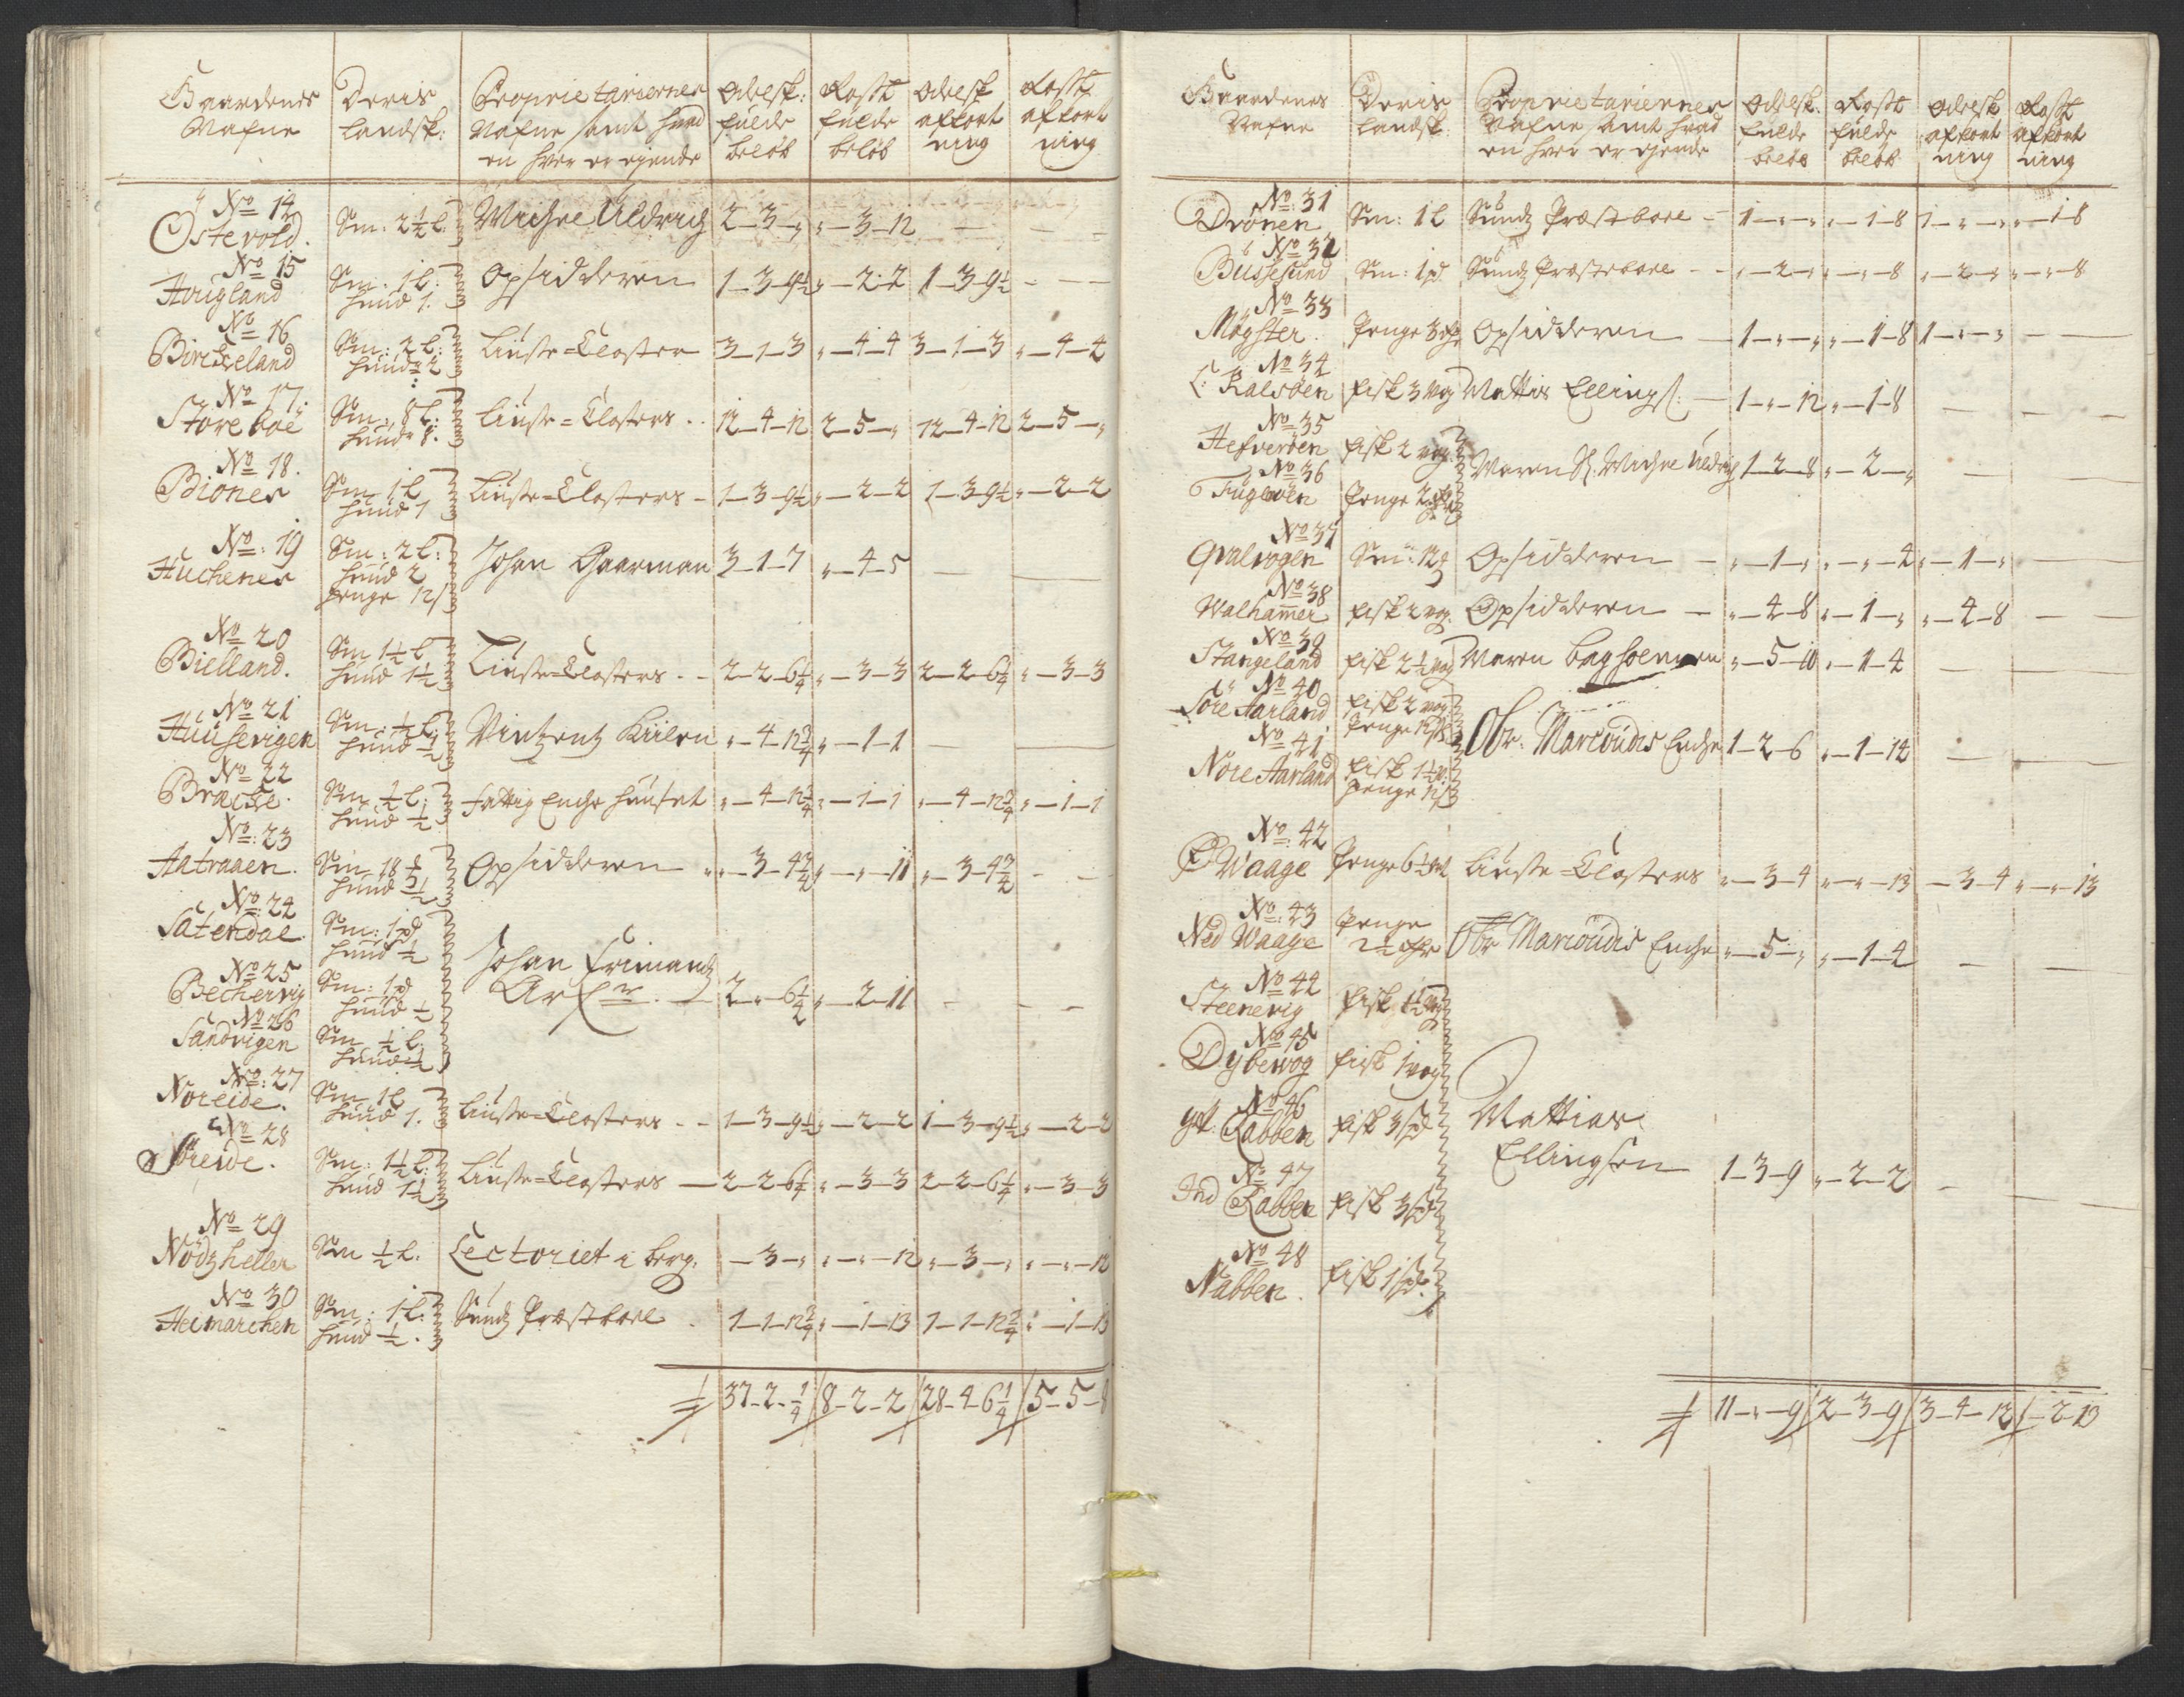 Gaardenes Nafne | Deris Landsk: | Proprietariernes Nafne samt hvad en hver er eyende | Odelsk: fulde beløb | Rostt fulde beløb | Odelsk afkort ning | Rostt afkort ning
No 14 Østevold. | Sm: 2½ l: | Michel Uldrich | 2-3-„ | „-3-12 | - | -
No 15 Hougland | Sm: 1 l: Huud 1. | Opsidderen | 1-3-9½ | „-2-2 | 1-3-9½ | -
No 16 Birckeland | Sm: 2 l: Huude 2 | Liuse=Closter | 3-1-3 | „-4-4 | 3-1-3 | „-4-4
No 17. Storeboe | Sm: 8 l: Huude 8. | Liuse=Closters | 12-4-12 | 2-5-„ | 12-4-12 | 2-5-„
No 18. Biönes | Sm 1 l Huud 1 | Liuse=Closters | 1-3-9½ | „-2-2 | 1-3-9½ | „-2-2
No: 19 Huchenes | Sm: 2 l: Huud 2 Penge 12 s | Johan Gaarman | 3-1-7 | „-4-5 | - | -
No 20 Bielland. | Sm 1½ l Huud 1½ | Liuse=Closters | 2-2-6¼ | „-3-3 | 2-2-6¼ | „-3-3
No 21 Huusevigen | Sm: ½ l: Huud ½ | Vintzentz Kiilen | „-4-12¾ | „-1-1 | - | -
No 22 Bracke. | Sm ½ l: Huud ½ | Fattig Enche Huuset | „-4-12¾ | „-1-1 | „-4-12¾ | „-1-1
No: 23 Aatraaen. | Sm 18 Huud ½ | Opsidderen | „-3-4½ | „-„-11 | „-3-4½ | -
No: 24 Sätendal. | Sm: 1 pd Huud ½
No 25 Bechervig | Sm: 1 pd Huud ½ | Johan Frimands Arf | 2-„-6½ | „-2-11 | - | -
No 26 Sandvigen | Sm ½ l. Huud ½
No: 27 Noreide. | Sm 1 l Huud 1. | Liuse=Closters | 1-3-9½ | „-2-2 | 1-3-9½ | „-2-2
No 28 Söreide. | Sm: 1½ l: Huud 1½ | Liuse=Closters | 2-2-6¼ | „-3-3 | 2-2-6¼ | „-3-3
No 29 Nödzheller | Sm ½ l: | Lectoriet i Berg: | -3-„ | „-„-12 | „-3-„ | „-„-12
No 30 Heimarchen | Sm: 1 l: Huud ½. | Sundz Præstbole | 1-1-12¾ | „-1-13 | 1-1-12¾ | „-1-13
37-2-¼ | 8-2-2 | 28-4-6¼ | 5-5-8
Gaardenes Nafne | Deris Landsk: | Proprietariernes Nafne samt hvad en hver er eyende | Odelsk. fulde beløb | Rostt fulde beløb | Odelsk afkort ning | Rostt afkort ning
No: 31 Drönen | Sm: 1 l | Sundz Præstbole | 1-„-„ | „-1-8 | 1-„-„ | „-1-8
No 32 Bussesund | Sm: 1 pd | Sundz Præstebole | „-2-„ | „-„-8 | „-2-„ | „-„-8
No 33 Mögster. | Penge 3 | Opsidderen | 1-„-„ | „-1-8 | 1-„-„ | -
No 34 Kalsöen | Fisk 3 vog | Mattis Ellings: | 1-„-12 | „-1-8 | - | -
No 35 Hefveröen | Fisk 2 vog | Maren Sl. Michel Uldrich | 1-2-8 | „-2-„ | - | -
No 36 Fugløen | Penge 2
No 37 Qvalvogen | Sm: 12 | Opsidderen | „-1-„ | „-„-4 | „-1-„ | -
No 38 Walhammer | Fisk 2 vog. | Opsidderen | „-4-8 | „-1-„ | „-4-8 | -
No 39 Stangeland | Fisk 2½ vog | Maren Bagsöe | „-5-10 | „-1-4 | - | -
No 40 Sore Aarland | Fisk 2 vog Penge 12 s
No 41 Nore Aarland | Fisk 1½ v. Penge 12 s | Obr: Marcoudis Enche | 1-2-6 | „-1-14 | - | -
No: 42 Waage | Penge 6½ | Liuse=Closters | „-3-4 | „-„-13 | -3-4 | „-„-13
No: 43 Ned Waage | Penge 2½ | Obr Marcoudis Enche | „-5-„ | „-1-4 | - | -
No 44 Steenevig | Fisk 1½ vog
No 45 Dybevog | Fisk 1 vog
No 46 Yt Rabben | Fisk 3 pd | Mattias Ellingsen | 1-3-9 | „-2-2 | - | -
No 47 Ind Rabben | Fisk 3 pd
No 48 Nabben. | Fisk 1 pd.
11-„-9 | 2-3-9 | 3-4-12 | 1-2-13